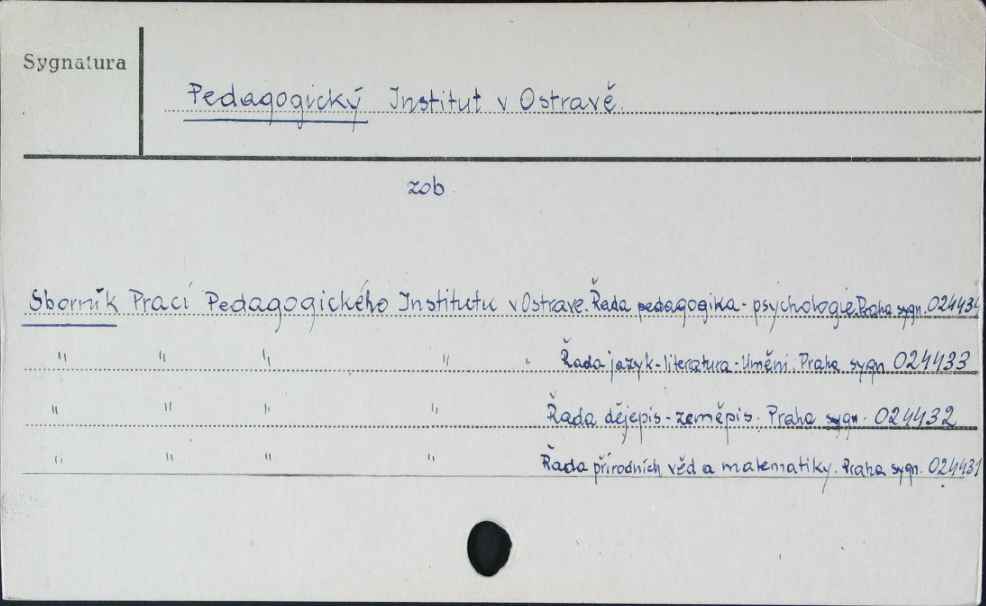 Sygnatura
Pedagogický Institut v Ostravě.
zob.
Sborník Prací Pedagogického Institutu v Ostrave. Řada pedagogika - psychologie. Praha sygn. 024434
" " " " " Řada jazyk - literatura - Umění. Praha sygn 024433
" " " " Řada dějepis - zeměpis. Praha sygn. 024432
" " " " Řada přírodních věd a matematiky. Praha sygn. 024431